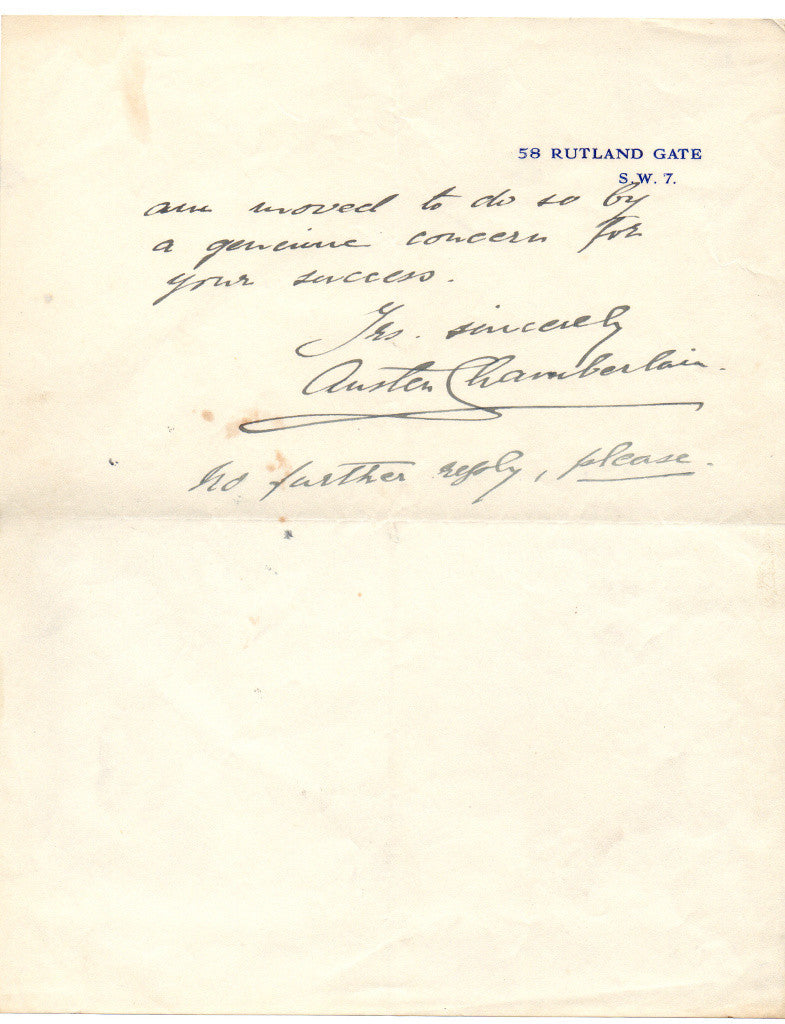 58 RUTLAND GATE
S.W. 7.
am moved to do so by
a genuine concern for
your success.
Yrs. sincerely
Austen Chamberlain.
No further reply, please.